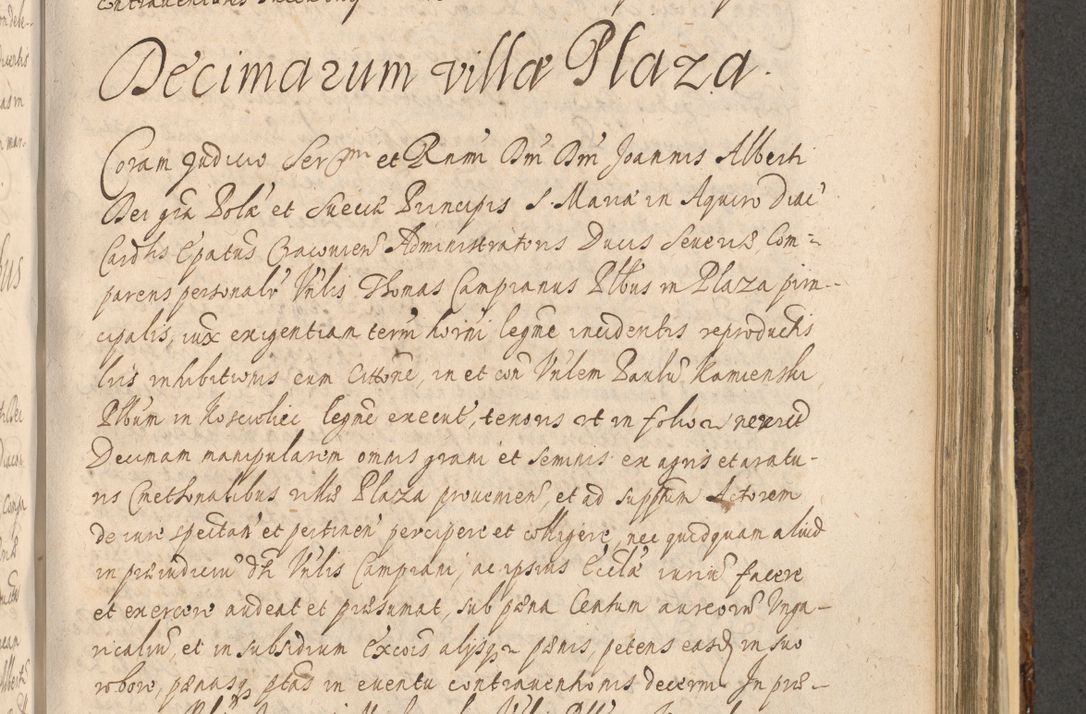 Decimarum villæ Plaza.
Coram Judicio Sermi et Rndmi Dni Dni Joannis Alberti
Dei gra Polæ et Sueciæ Principis S. Mariæ in Aquiro Diac
Cardlis Epatus Cracovien Administratoris Ducis Severiæ Com=
parens personalr Vnlis Thomas Campianus Plbus in Plaza prin-
cipalis, iux exigentiam term horni legme incidentis reproductis
lris inhibitionis cum Cittone, in et con Vnlem Paulu Kamienski
Plbum in Kosciolec legme execut, tenoris ut in folio
Decimam manipularem omnis grani et seminis ex agris et aratu-
ris Cmethonalibus villæ Plaza provenien, et ad suppsum Actorem
de iure spectan et pertinen percipere et colligere, nec quidquam aliud
in præiudiciu dti Vnlis Campiani, ac ipsius Ecclæ iuriu facere
et exercere audeat et præsumat, sub pæna Centum aureoru Vnga-
ricaliu, et in subsidium Excois alijsq pænis, petens easd in suo
robore, pænasq ptas in eventu contraventionis decerni. In præ-